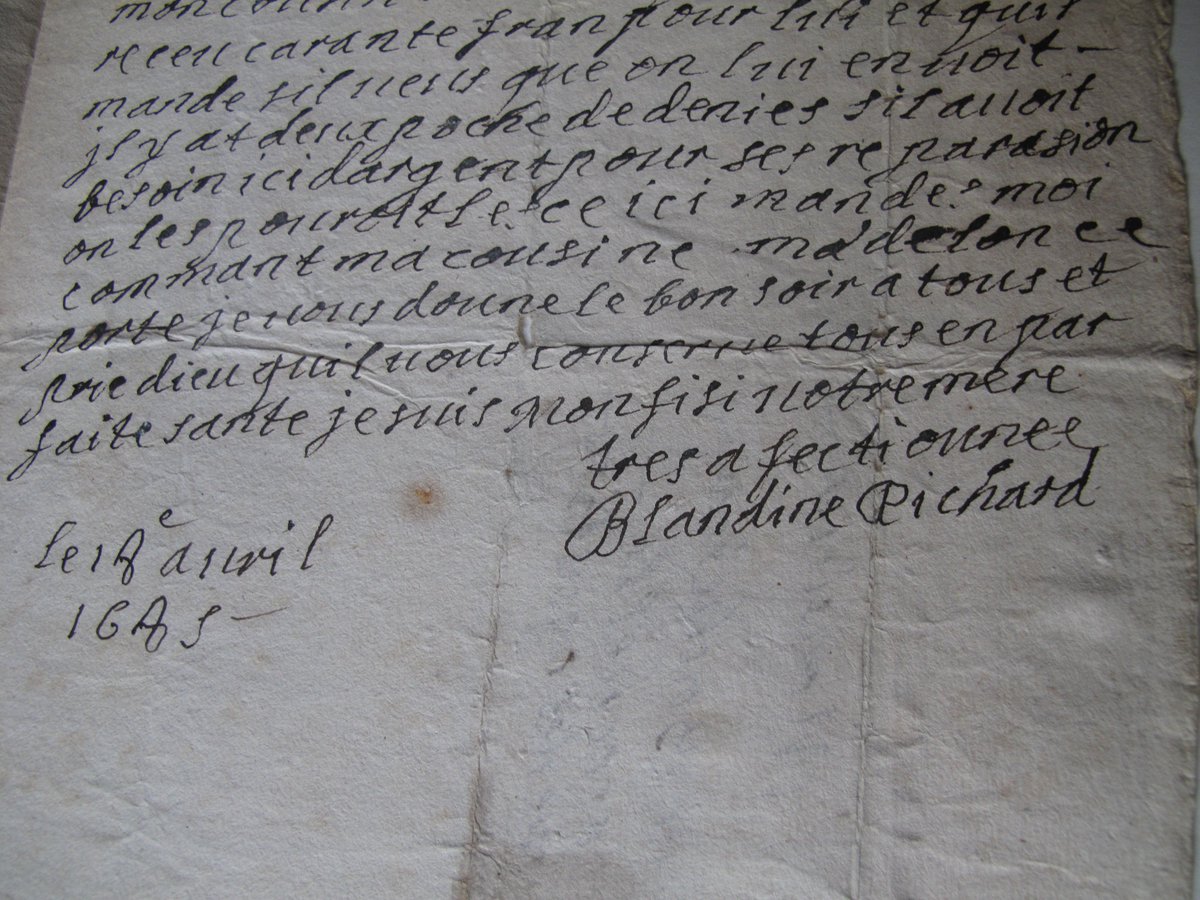 receu carante fran pour lui et quil
mande sil veus que on lui envoit -
jl y at deux poche de denies sil avoit
besoin ici dargent pour ses reparasion
on les pouroit le ce ici mandes moi
commant ma cousine madelon ce
porte je vous donne le bon soir a tous et
prie dieu quil vous conserve tous en par
faite sante je suis mon fisi votre mere
tres afectionnee
Blandine Richard
le 18e avril
1685